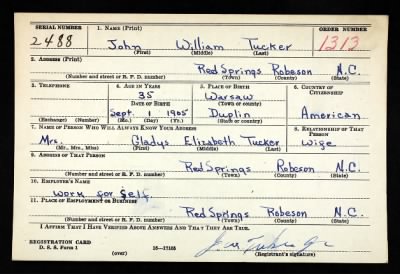 SERIAL NUMBER 1. NAME (Print) ORDER NUMBER
2488 John William Tucker 1313
(First) (Middle) (Last)
2. ADDRESS (Print)
Red Springs Robeson N.C.
(Number and street or R. F. D. number) (Town) (County) (State)
3. TELEPHONE 4. AGE IN YEARS 5. PLACE OF BIRTH 6. COUNTRY OF CITIZENSHIP
35 Warsaw
DATE OF BIRTH (Town or county)
Sept. 1 1905 Duplin American
(Exchange) (Number) (Mo.) (Day) (Yr.) (State or country)
7. NAME OF PERSON WHO WILL ALWAYS KNOW YOUR ADDRESS 8. RELATIONSHIP OF THAT PERSON
Mrs. Gladys Elizabeth Tucker Wife
(Mr., Mrs., Miss) (First) (Middle) (Last)
9. ADDRESS OF THAT PERSON
Red Springs Robeson N.C.
(Number and street or R. F. D. number) (Town) (County) (State)
10. EMPLOYER'S NAME
Work for Self
11. PLACE OF EMPLOYMENT OR BUSINESS
Red Springs Robeson N.C.
(Number and street or R. F. D. number) (Town) (County) (State)
I AFFIRM THAT I HAVE VERIFIED ABOVE ANSWERS AND THAT THEY ARE TRUE.
REGISTRATION CARD
D. S. S. Form 1 16—17105
(over) (Registrant's signature)